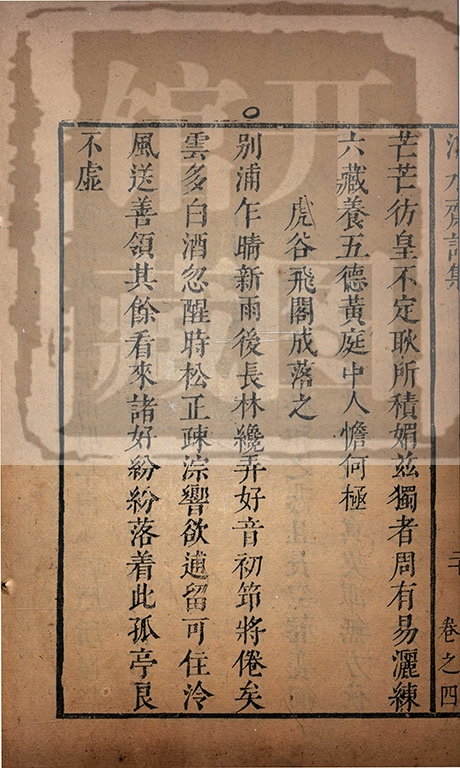 芒芒彷皇不定耿所積媚茲獨者周有易灑練
六藏養五德黃庭中人憺何極
虎谷飛閣成落之
別浦乍晴新雨後長林纔弄好音初節將倦矣
雲多白酒忽醒時松正疎淙響欲逋留可住泠
風送善領其餘看來諸好紛紛落着此孤亭良
不虛
卷之四